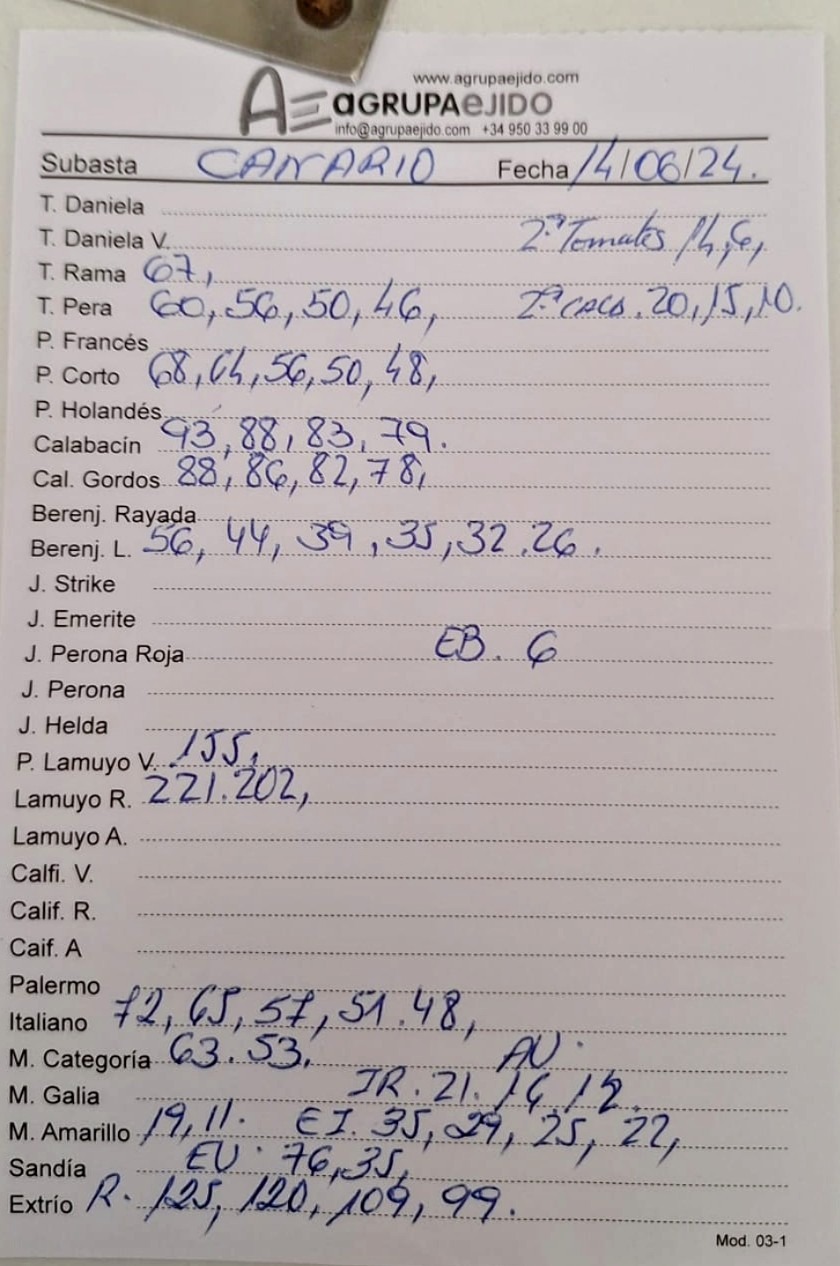 www.agrupaejido.com
AE aGRUPAeJIDO
info@agrupaejido.com +34 950 33 99 00
Subasta CANARIO Fecha 14/06/24.
T. Daniela
T. Daniela V. 2ª Tomates 14, 6,
T. Rama 67,
T. Pera 60, 56, 50, 46, 2ª CACA. 20, 15, 10.
P. Francés
P. Corto 68, 64, 56, 50, 48,
P. Holandés
Calabacín 93, 88, 83, 79.
Cal. Gordos 88, 86, 82, 78,
Berenj. Rayada
Berenj. L. 56, 44, 39, 35, 32. 26.
J. Strike
J. Emerite
J. Perona Roja EB. 6
J. Perona
J. Helda
P. Lamuyo V. 155,
Lamuyo R. 221. 202,
Lamuyo A.
Calfi. V.
Calif. R.
Caif. A
Palermo
Italiano 72, 65, 57, 51. 48,
M. Categoría 63. 53.
M. Galia IR. 21. 12.
M. Amarillo 19, 11. EI. 35, 29, 25, 22,
Sandía EV. 76, 35,
Extrío R. 125, 120, 109, 99.
Mod. 03-1